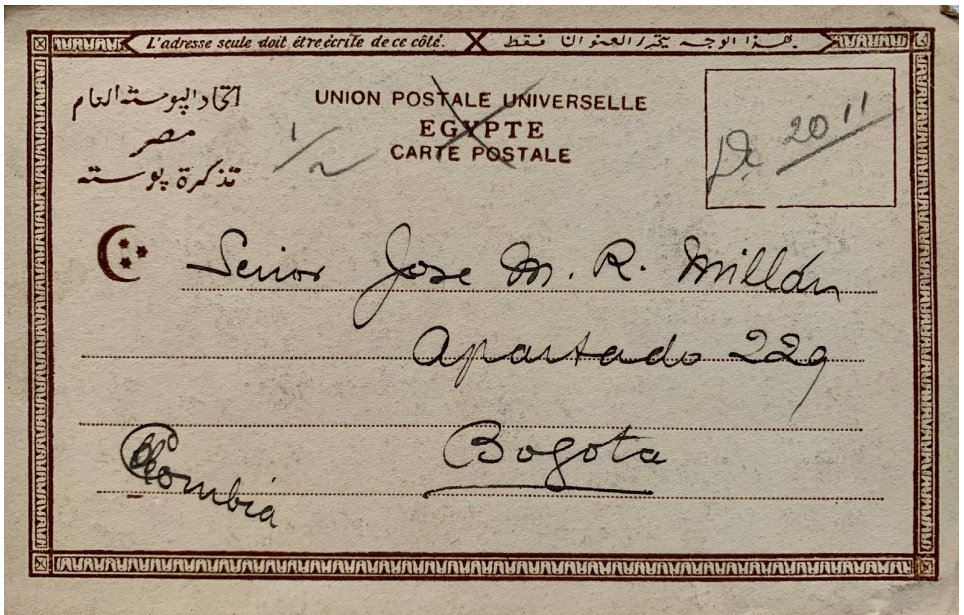 L'adresse seule doit être écrite de ce côté.
بهذا الوجه يحرر العنوان فقط
اتحاد البوسته العام
مصر
تذكرة بوسته
UNION POSTALE UNIVERSELLE
EGYPTE
CARTE POSTALE
1/2
20 11
Senior Jose M. R. Millán
Apartado 229
Bogota
Colombia